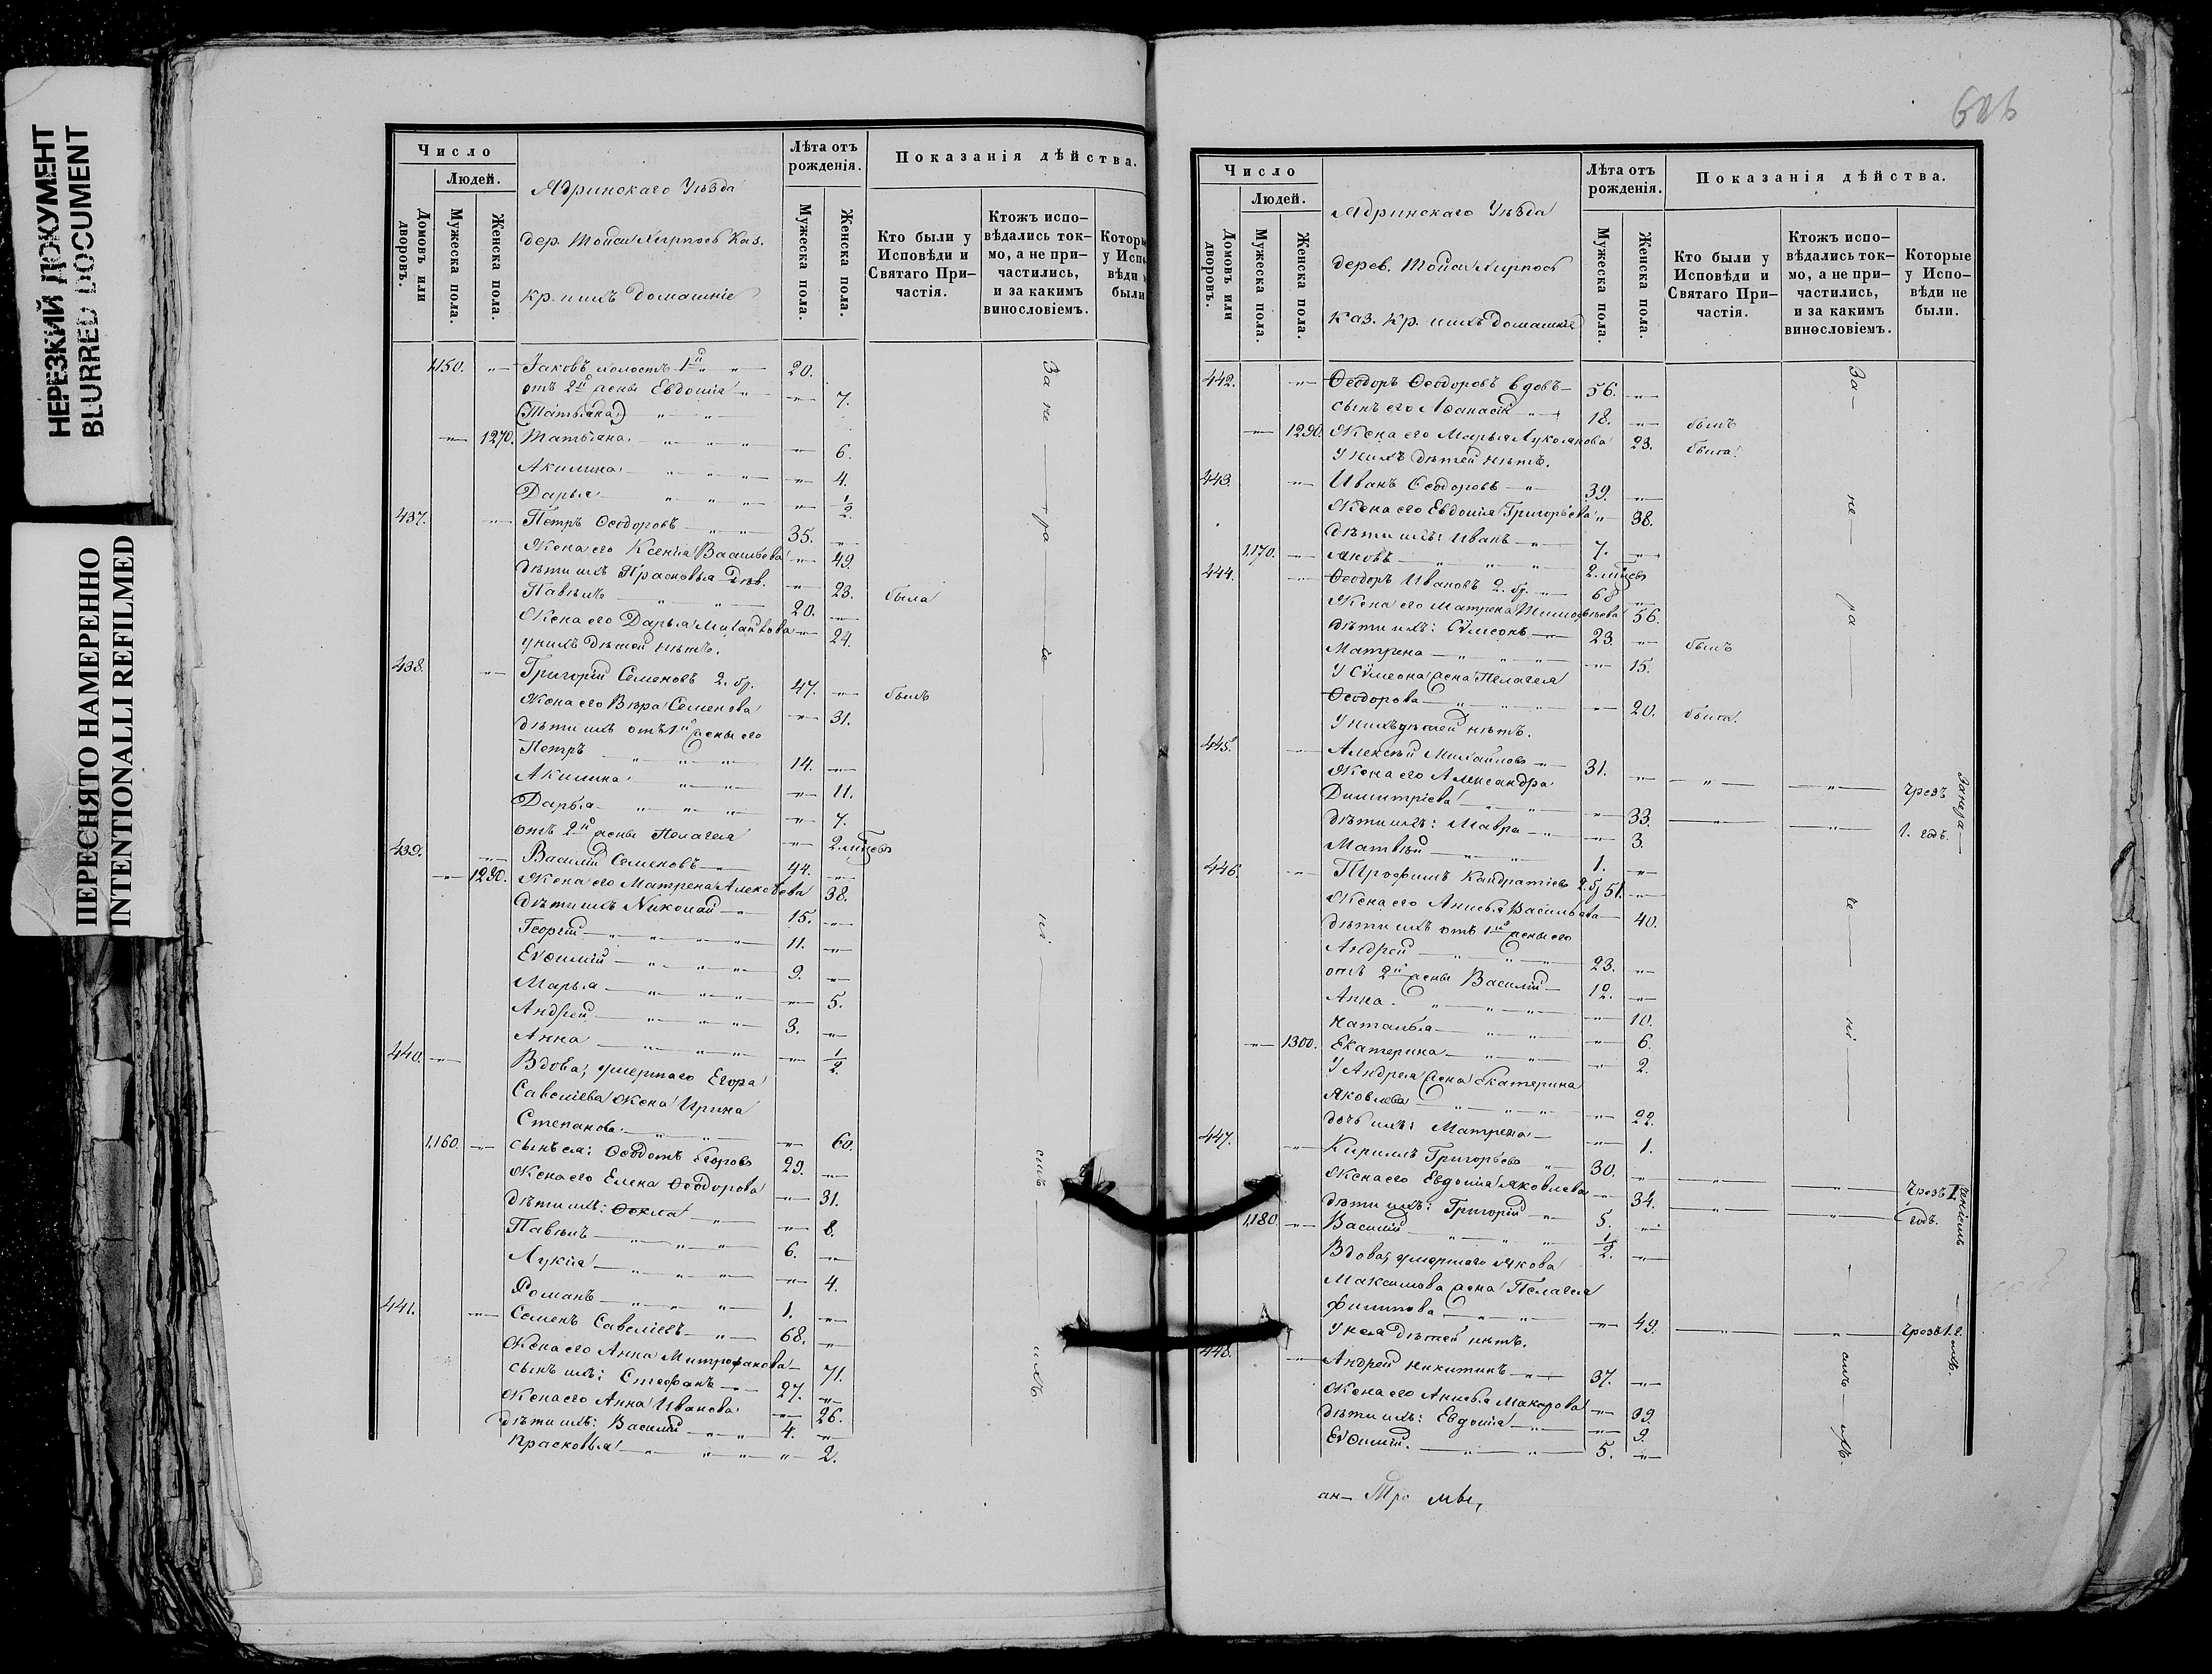 НЕРЕЗКИЙ ДОКУМЕНТ
BLURRED DOCUMENT
ПЕРЕСНЯТО НАМЕРЕННО
INTENTIONALLI REFILMED
Число
Людей.
Домовъ или дворовъ.
Мужеска пола.
Женска пола.
Ядринскаго Уѣзда
дер. Каз.
кр. и ихъ домашніе
Лѣта отъ рожденія.
Мужеска пола.
Женска пола.
Показанія дѣйства.
Кто были у Исповѣди и Святаго При-частія.
Ктожъ испо-вѣдались ток-мо, а не при-частились, и за какимъ винословіемъ.
1150. Яковъ холостъ 20.
отъ 2й жены Евдокія 7.
(Татьяна)
1270. Татьяна 6.
Акилина 4.
Дарья ½.
437. Петръ Ѳеодоровъ 35.
Жена его Ксенія Васильева 49.
дѣти ихъ Прасковья дѣв. 23. была
Павелъ 20.
Жена его Дарья 24.
у нихъ дѣтей нѣтъ.
438. Григорій Семеновъ 2. бр. 47. былъ
Жена его Вѣра Семенова 31.
дѣти ихъ отъ 1й жены его
Петръ 14.
Акилина 11.
Дарья 7.
отъ 2й жены Пелагея 2.
439. Василій Семеновъ 44.
1280. Жена его Матрена Алексѣева 38.
дѣти ихъ Николай 15.
Георгій 11.
Евѳимій 9.
Марья 5.
Андрей 3.
Анна ½.
440. Вдова, умершаго Егора
Савеліева жена Ирина
Степанова 60.
1160. сынъ ея: Ѳеодотъ Егоровъ 29.
Жена его Елена Ѳеодорова 31.
дѣти ихъ: Ѳекла 8.
Павелъ 6.
Лукія 4.
Романъ 1.
441. Семенъ Савеліевъ 68.
Жена его Анна Митрофанова 71.
сынъ ихъ: Стефанъ 27.
Жена его Анна Иванова 26.
дѣти ихъ: Василій 4.
Прасковья 2.
Число
Людей.
Домовъ или дворовъ.
Мужеска пола.
Женска пола.
Ядринскаго Уѣзда
дерев.
каз. кр. и ихъ домашніе
Лѣта отъ рожденія.
Мужеска пола.
Женска пола.
Показанія дѣйства.
Кто были у Исповѣди и Святаго При-частія.
Ктожъ испо-вѣдались ток-мо, а не при-частились, и за какимъ винословіемъ.
Которые у Испо-вѣди не были.
442. Ѳеодоръ Ѳеодоровъ вдовъ 56.
сынъ его Аѳанасій 18. былъ
1290. Жена его Марья 23. была
У нихъ дѣтей нѣтъ.
443. Иванъ Ѳеодоровъ 39.
Жена его Евдокія Григорьева 38.
дѣти ихъ: Иванъ 7.
1170. Яковъ 2.
444. Ѳеодоръ Ивановъ 2. бр. 68
Жена его Матрена Тимоѳеева 56.
дѣти ихъ: Сѵмеонъ 23. былъ
Матрена 15.
У Сѵмеона жена Пелагея
Ѳеодорова 20. была
У нихъ дѣтей нѣтъ.
445. Алексѣй Михайловъ 31.
Жена его Александра чрезъ
Димитріева 33. 1. годъ.
дѣти ихъ: Мавра 3.
Матвѣй 1.
446. Трофимъ Кандратіевъ 2. б. 51.
Жена его Анисья Васильева 40.
дѣти ихъ отъ 1й жены его
Андрей 23.
отъ 2й жены Василій 12.
Анна 10.
Наталья 6.
1300. Екатерина 2.
У Андрея жена Екатерина
Яковлева 22.
дочь ихъ: Матрена 1.
447. Кирилъ Григорьевъ 30.
Жена его Евдокія Яковлева 34. чрезъ 1
дѣти ихъ: Григорій 5. годъ.
1180. Василій ½.
Вдова, умершаго Якова
Максимова жена Пелагея
49. чрезъ 1. г.
У нея дѣтей нѣтъ.
448. Андрей Никитинъ 37.
Жена его Анисья Макарова 39.
дѣти ихъ: Евдокія 9.
Евѳимій 5.